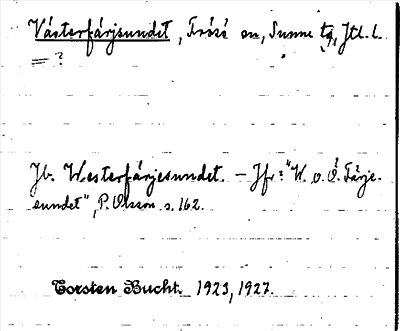 Västerfärjsundet, Frösö sn, Sunne tg, Jtl. l.
= ?
Jb. Westerfärjesundet. – Jfr: "W. o. Ö. Färje-
sundet", P. Olsson s. 162.
Torsten Bucht. 1923, 1927.